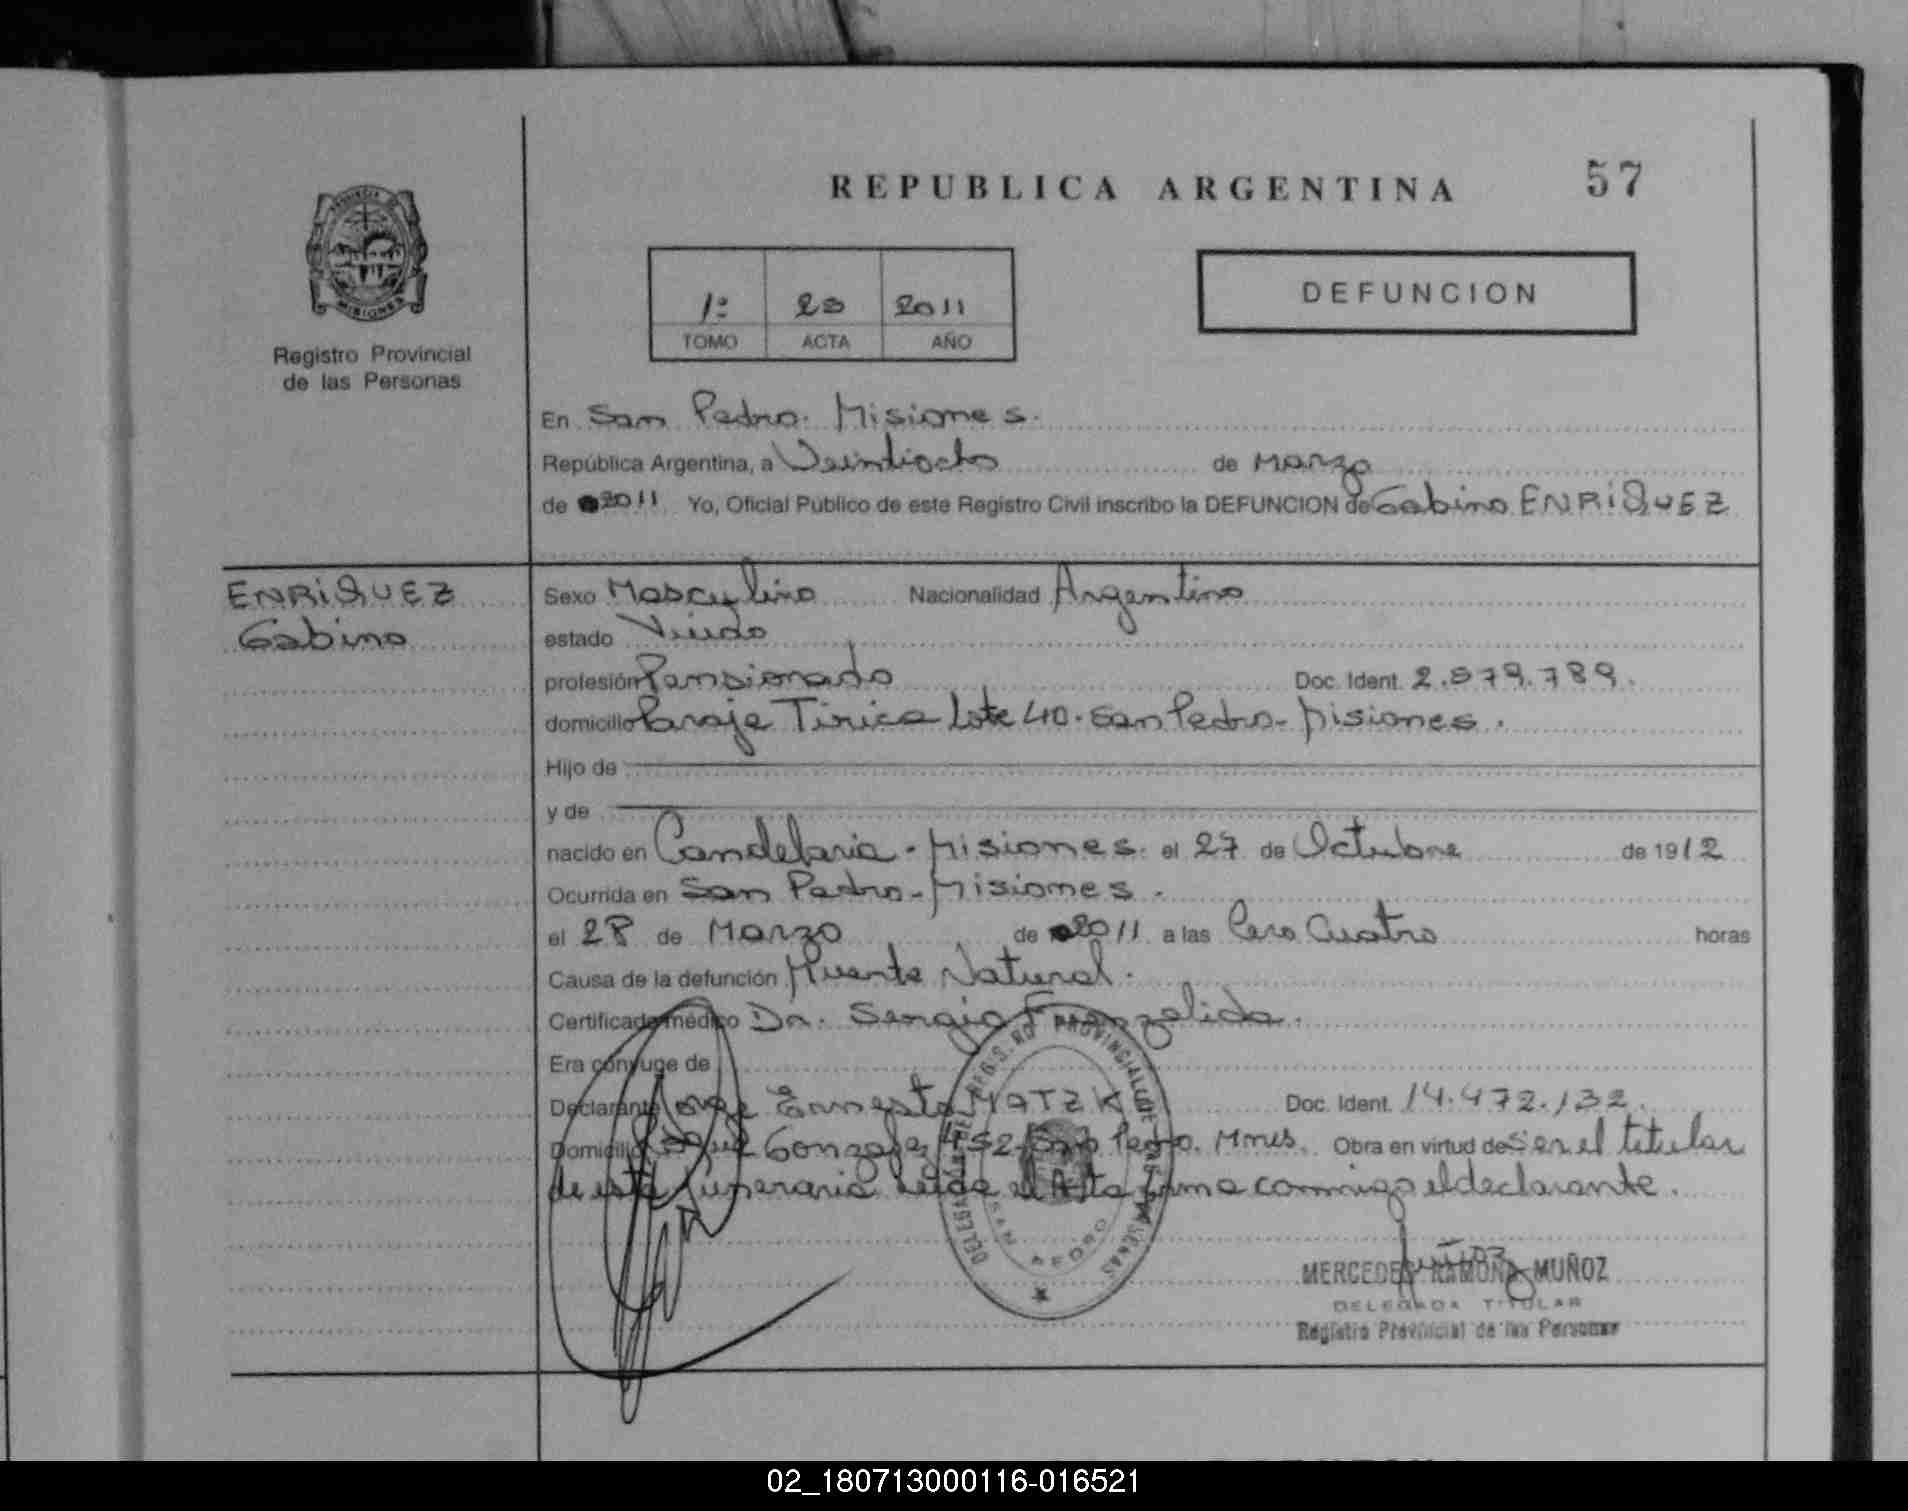 REPUBLICA ARGENTINA 57
PROVINCIA DE
MISIONES
Registro Provincial
de las Personas
1º 23 2011
TOMO ACTA AÑO
DEFUNCION
En San Pedro. Misiones.
República Argentina, a Veintiocho de Marzo
de 2011 Yo, Oficial Público de este Registro Civil inscribo la DEFUNCION de Gabino ENRIQUEZ
ENRIQUEZ
Gabino
Sexo Masculino Nacionalidad Argentino
estado Viudo
profesión Pensionado Doc. Ident. 2.579.789.
domicilio Paraje Tirica Lote 40. San Pedro - Misiones.
Hijo de
y de
nacido en Candelaria - Misiones. el 27 de Octubre de 1912
Ocurrida en San Pedro - Misiones.
el 28 de Marzo de 2011 a las Cero Cuatro horas
Causa de la defunción Muerte Natural.
Certificado médico Dr. Sergio Funzalida.
Era cónyuge de
Declarante Jorge Ernesto MATZK Doc. Ident. 14.472.132.
Domicilio Roque Gonzalez 452 San Pedro. Mnes. Obra en virtud de Ser el titular
de esta funeraria leida el Acta firma conmigo el declarante.
DELEGACION REGISTRO PROVINCIAL DE LAS PERSONAS
SAN PEDRO
Muñoz
MERCEDES RAMONA MUÑOZ
DELEGADA TITULAR
Registro Provincial de las Personas
02_180713000116-016521